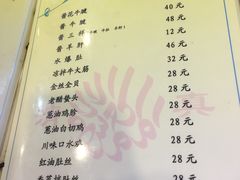 酱花牛腱 40元
酱牛腱 48元
酱三样 12元
酱羊肝 46元
水爆肚 32元
凉拌牛大筋 28元
金丝金贝 28元
老醋蛰头 28元
葱油鸡胗 28元
葱油白切鸡 28元
川味口水鸡 28元
红油肚丝 28元
肚丝 28元